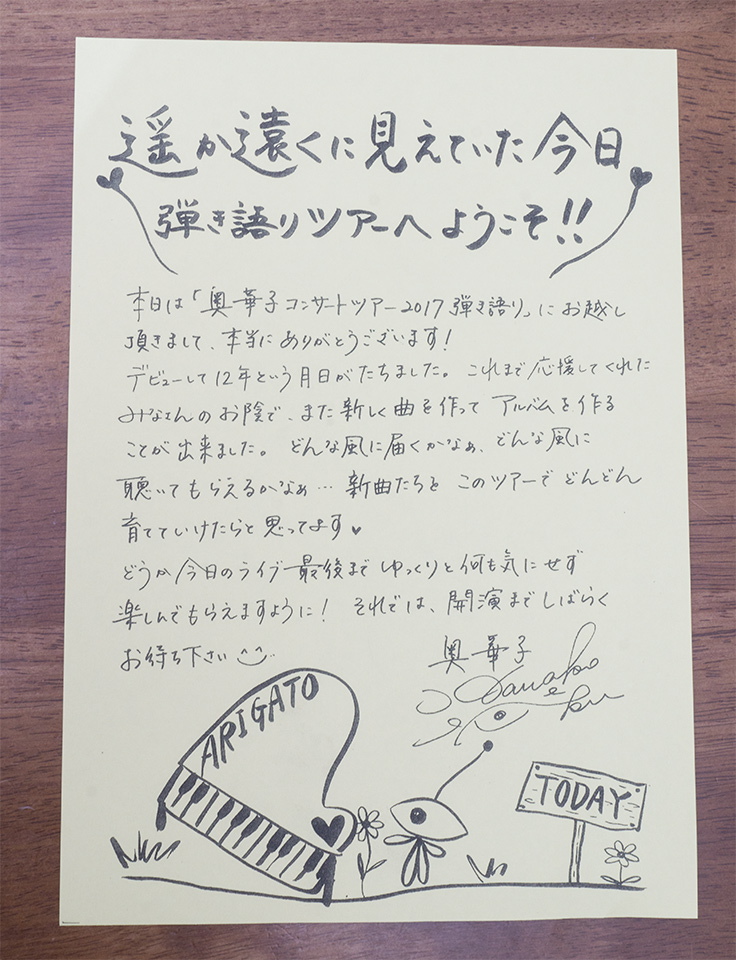 遥か遠くに見えていた今日
弾き語りツアーへようこそ!!
本日は「奥華子コンサートツアー2017弾き語り」にお越し
頂きまして、本当にありがとうございます!
デビューして12年という月日がたちました。これまで応援してくれた
みなさんのお陰で、また新しく曲を作ってアルバムを作る
ことが出来ました。どんな風に届くかなぁ、どんな風に
聴いてもらえるかなぁ…新曲たちをこのツアーでどんどん
育てていけたらと思ってます♥
どうか今日のライブ最後までゆっくりと何も気にせず
楽しんでもらえますように!それでは、開演までしばらく
お待ち下さい
奥華子
Hanako
Oku
ARIGATO
TODAY